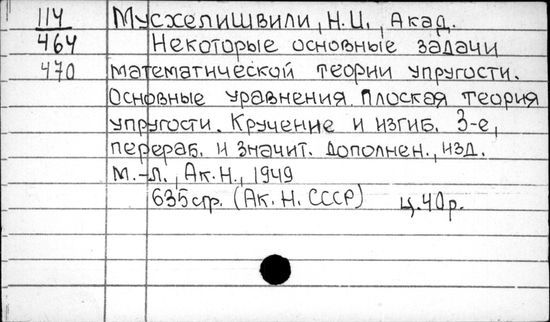 114 Мусхелишвили, Н.И., Акад.
464 Некоторые основные задачи
470 математической теории упругости.
Основные уравнения. Плоская теория
упругости. Кручение и изгиб. 3-е,
перераб. и значит. дополнен., изд.
М.-Л., Ак.Н., 1949
635стр. (Ак. Н. СССР) Ц.40р.